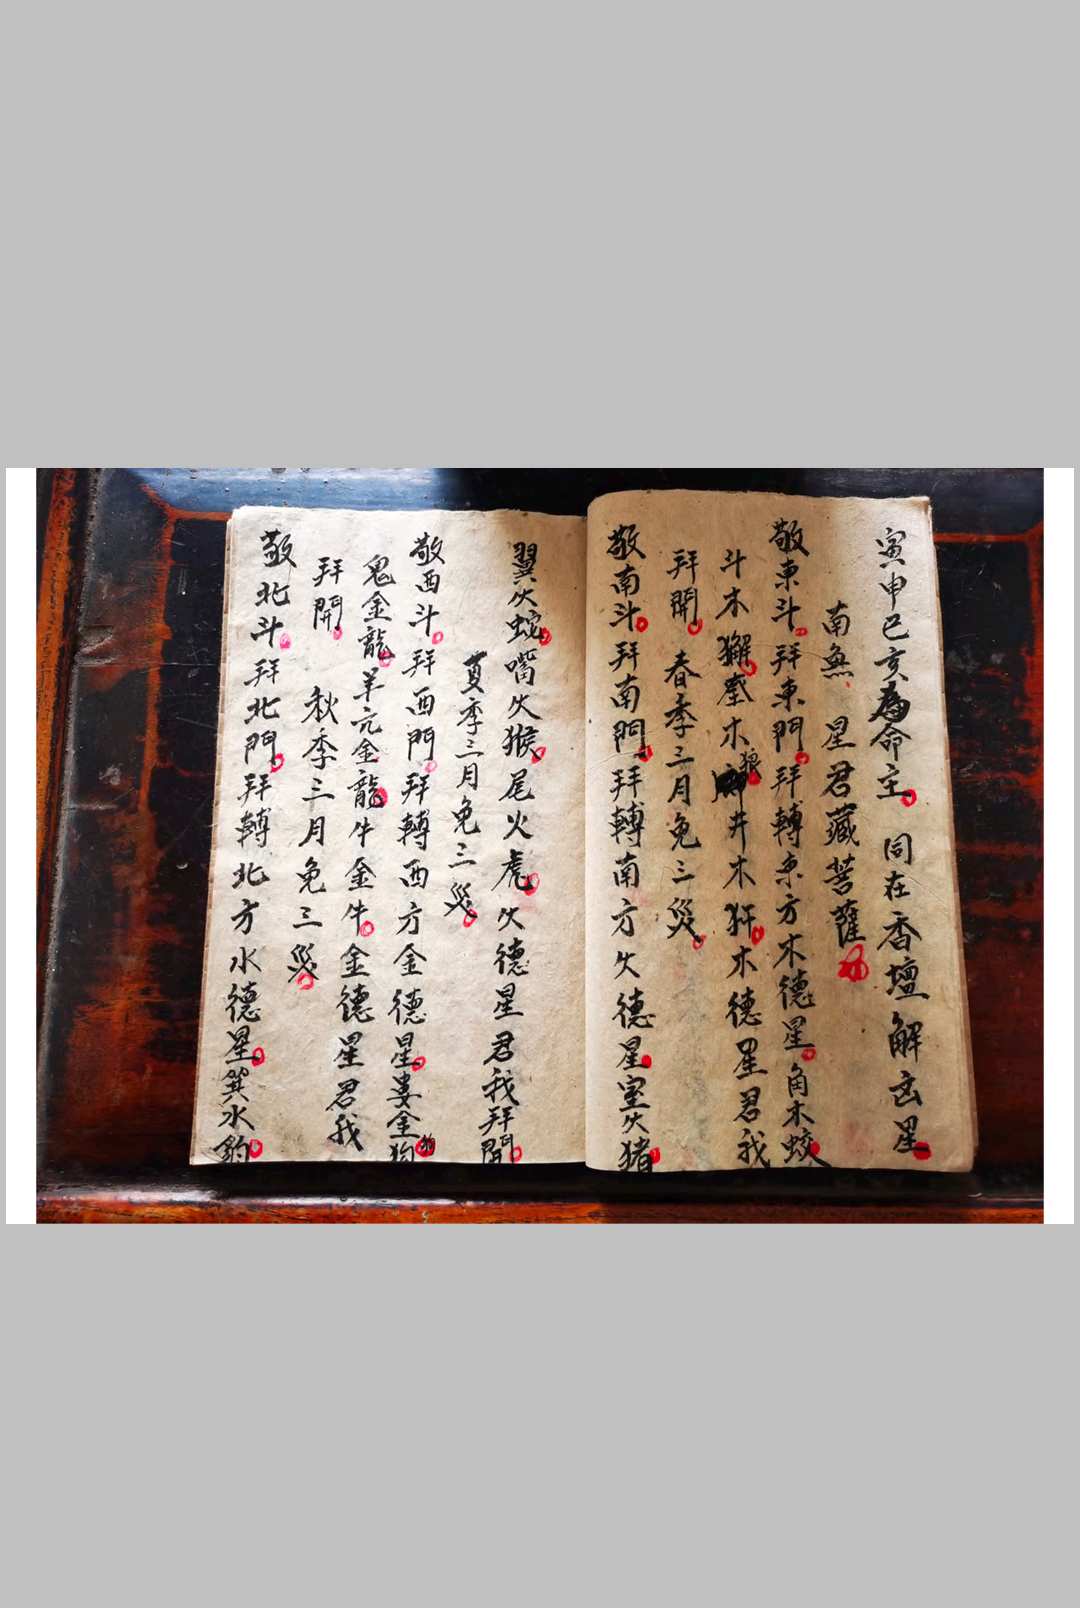 寅申巳亥為命主同在香壇解凶星
南無星君藏菩薩
敬東斗拜東門拜轉東方木德星角木蛟
斗木獬奎木狼井木犴木德星君我
拜開春季三月免三災
敬南斗拜南門拜轉南方火德星室火猪
翼火蛇嘴火猴尾火虎火德星君我拜開
夏季三月免三災
敬西斗拜西門拜轉西方金德星婁金狗
鬼金龍羊亢金龍牛金牛金德星君我
拜開秋季三月免三災
敬北斗拜北門拜轉北方水德星箕水豹